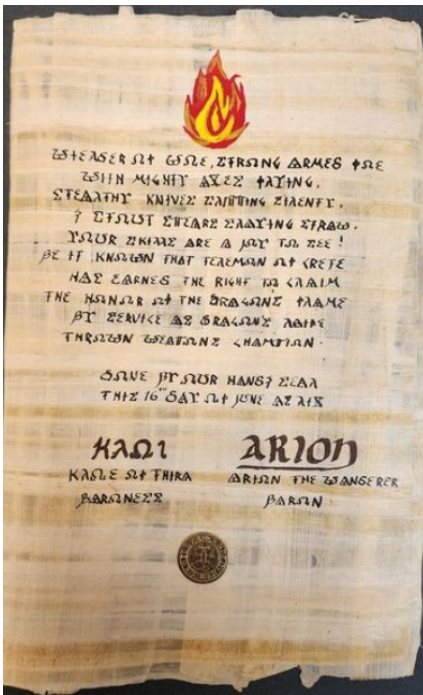 WIELDER OF STRONG ARMED FOE
WITH MIGHTY AXES FLYING,
STEALTHY KNIVES SLITTING SILENTY,
& STOUT SPEARS SLAYING STRAW.
YOUR SKILLS ARE A JOY TO SEE !
BE IT KNOWN THAT TELEMON OF CRETE
HAS EARNED THE RIGHT TO CLAIM
THE HONOUR OF THE DRAGONS FLAME
BY SERVICE AS DRAGON'S LAIRE
THROWN WEAPONS CHAMPION.
DONE BY OUR HAND & SEAL
THIS 16TH DAY OF JUNE AS LIX
ARION
OF THIRA
ARION THE WANDERER
BARONESS
BARON